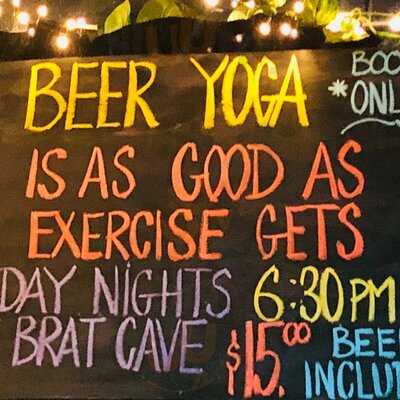 BEER YOGA BOO
*ONL
IS AS GOOD AS
EXERCISE GETS
DAY NIGHTS 6:30PM
BRAT CAVE $15.00 BEE
INCLU